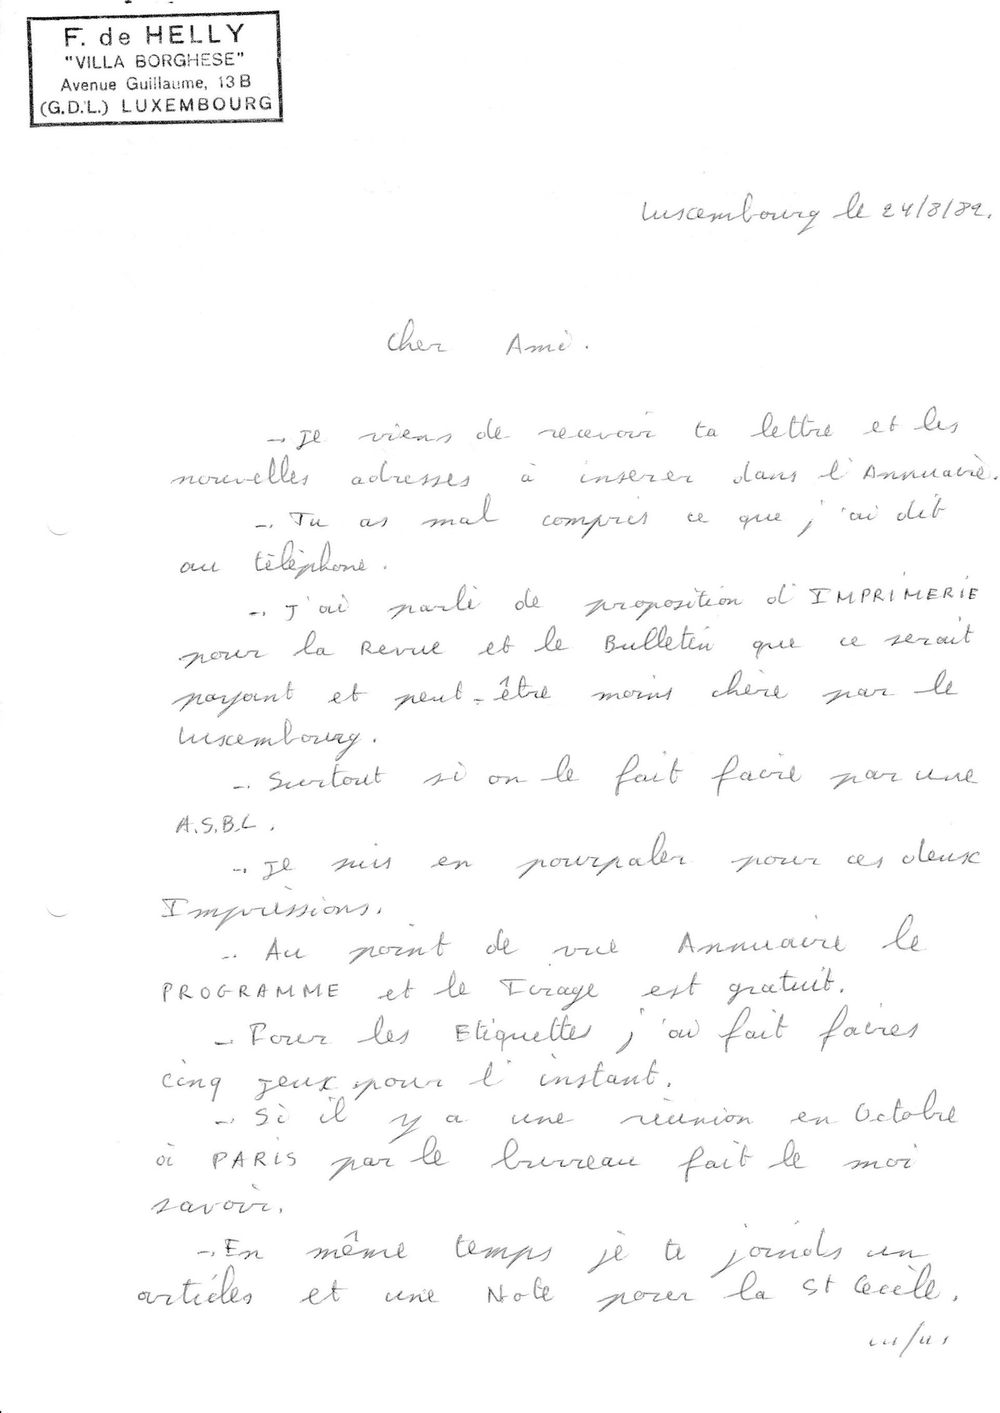 F. de HELLY
"VILLA BORGHESE"
Avenue Guillaume, 13 B
(G.D.L.) LUXEMBOURG
Luxembourg le 24/8/82.
Cher Ami.
-. Je viens de recevoir ta lettre et les
nouvelles adresses à inserer dans l'Annuaire.
-. Tu as mal compris ce que j'ai dit
au téléphone.
-. J'ai parlé de proposition d'IMPRIMERIE
pour la Revue et le Bulletin que ce serait
payant et peut-être moins chère par le
Luxembourg.
-. Surtout si on le fait faire par une
A.S.B.L.
-. Je suis en pourpaler pour ces deux
Impressions.
-. Au point de vue Annuaire le
PROGRAMME et le Tirage est gratuit.
-. Pour les Etiquettes j'ai fait faires
cinq jeux pour l'instant.
-. Si il y a une réunion en Octobre
à PARIS par le bureau fait le moi
savoir.
-. En même temps je te joinds un
articles et une Note pour la St Cecèle.
.../...